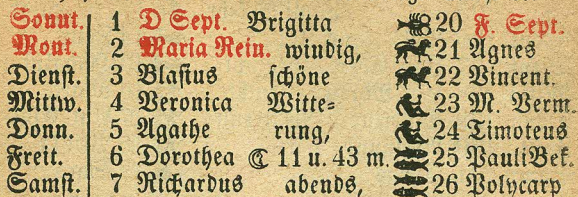 Sonnt. 1 D Sept. Brigitta 20 F. Sept.
Mont. 2 Maria Rein. windig, 21 Agnes
Dienst. 3 Blasius schöne 22 Vincent.
Mittw. 4 Veronica Witte= 23 M. Verm.
Donn. 5 Agathe rung, 24 Timoteus
Freit. 6 Dorothea ☾ 11 u. 43 m. 25 PauliBek.
Samst. 7 Richardus abends, 26 Polycarp